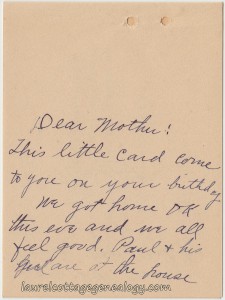 Dear Mother!
This little card come
to you on your birthday
We got home OK
this eve and we all
feel good. Paul & his
are at the house
laurelcottagegenealogy.com